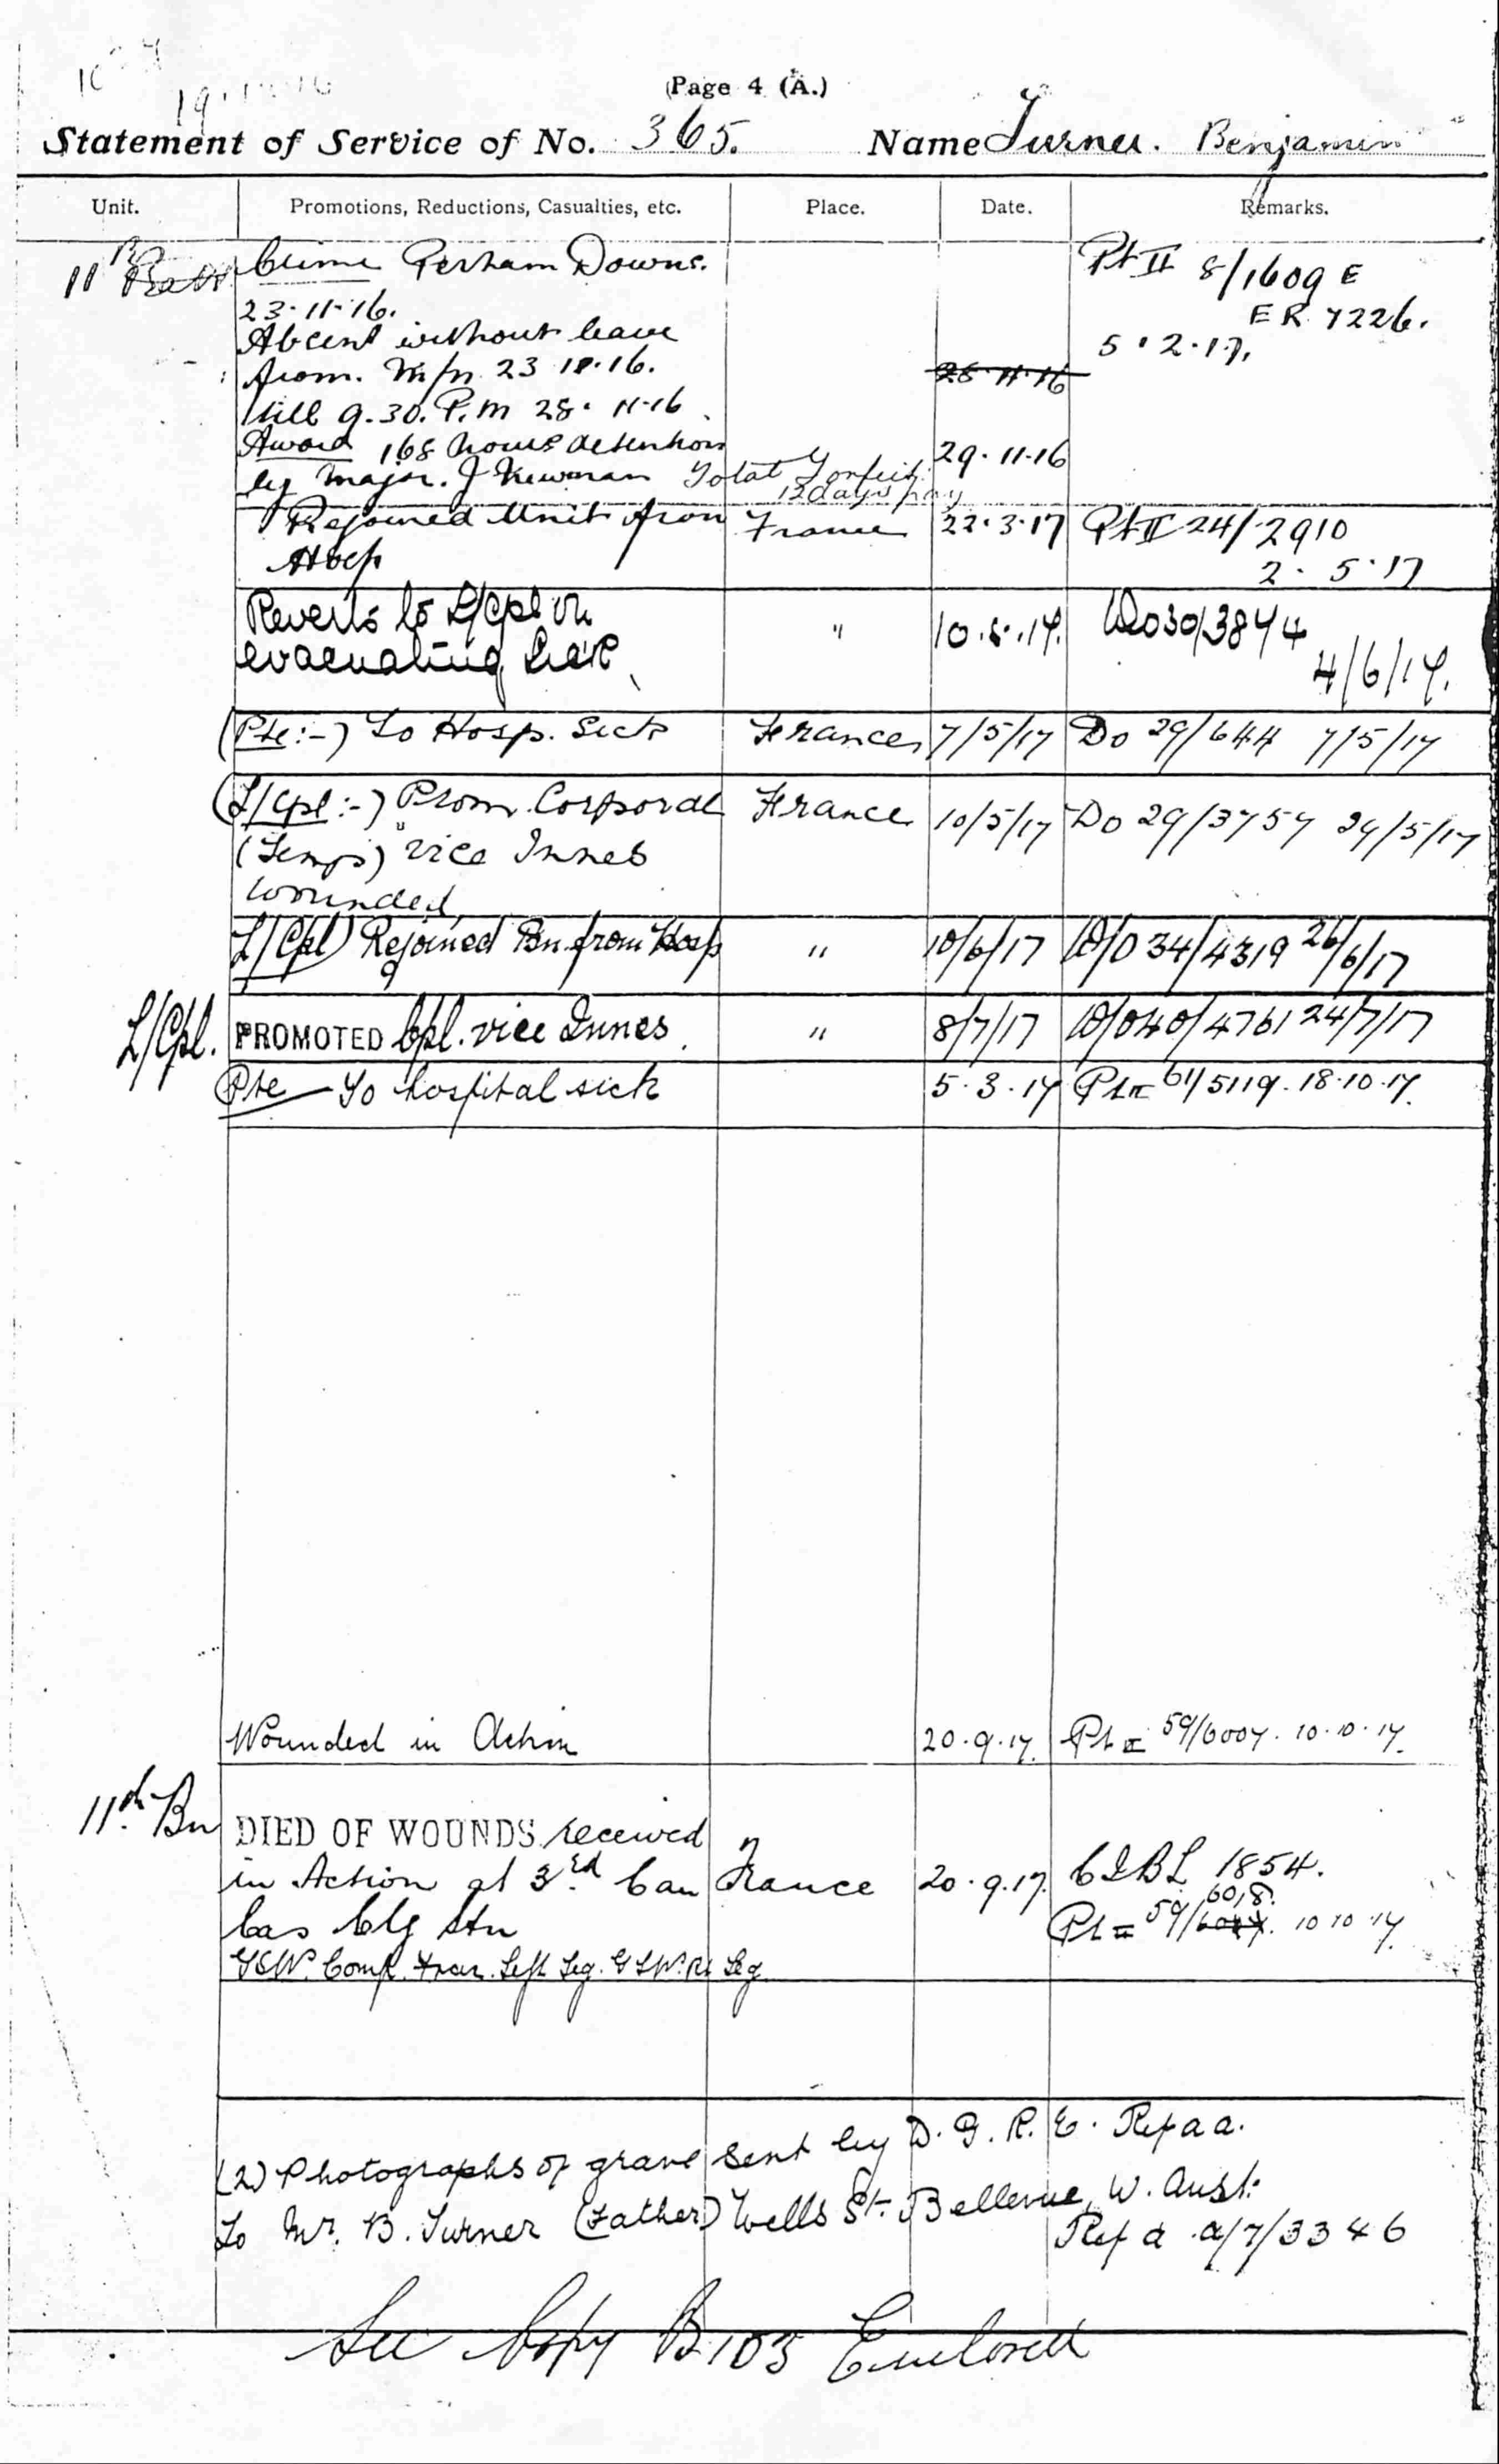 (Page 4 (A.)
Statement of Service of No. 365. Name Turner. Benjamin
Unit. Promotions, Reductions, Casualties, etc. Place. Date. Remarks.
11 Crime Perham Downs. Pt II 8/1609 E
23.11.16. ER 7226.
Absent without leave 5.2.17.
from. m/n 23 11.16. 28.11.16
till 9.30. P.m 28. 11.16
Award 168 hours detention 29.11.16
by Major. J Newman Total Forfeit
12 days pay
Rejoined Unit from France 22.3.17 Pt II 24/2910
Hosp 2.5.17
Reverts to L/Cpl on " 10.5.17. DO30/3874
evacuating sick 4/6/17.
(Pte:-) To Hosp. Sick France 7/5/17 Do 29/644 7/5/17
(L/Cpl:-) Prom. Corporal France 10/5/17 Do 29/3757 29/5/17
(Temp) vice Innes
wounded
L/Cpl) Rejoined Bn from Hosp " 10/6/17 D/O 34/4319 26/6/17
L/Cpl. PROMOTED Cpl. vice Innes. " 8/7/17 D/O 40/4761 24/7/17
Pte - To hospital sick 5.3.17 Pt II 61/5119. 18.10.17.
Wounded in Action 20.9.17. Pt II 59/6007. 10.10.17.
11th Bn DIED OF WOUNDS received
in Action at 3rd Can France 20.9.17. 1854.
Cas Clg Stn Pt II 59/6018. 10 10 17.
GSW. Comp. Frac. Left Leg. GSW. Rt Leg
(2) Photographs of grave sent by D. G. R. E.
To Mr. B. Turner (Father) Wells St. Bellevue, W. Aust.
Ref a a/7/3346
See Copy B103 Enclosed